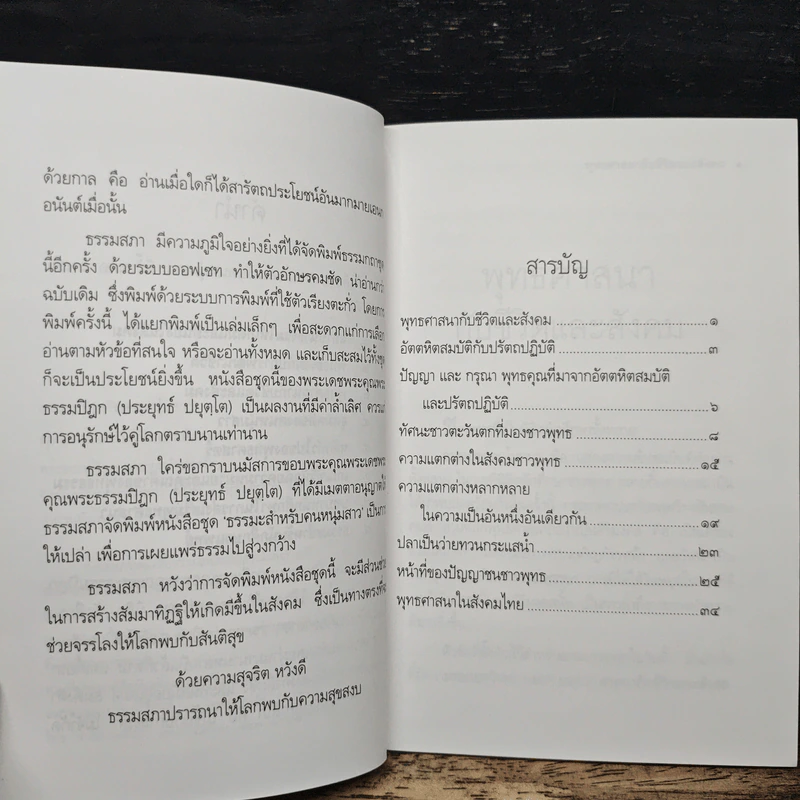 ด้วยกาล คือ อ่านเมื่อใดก็ได้สารัตถประโยชน์อันมากมายเอนก
อนันต์เมื่อนั้น
ธรรมสภา มีความภูมิใจอย่างยิ่งที่ได้จัดพิมพ์ธรรมกถาชุด
นี้อีกครั้ง ด้วยระบบออฟเซท ทำให้ตัวอักษรคมชัด น่าอ่านกว่า
ฉบับเดิม ซึ่งพิมพ์ด้วยระบบการพิมพ์ที่ใช้ตัวเรียงตะกั่ว โดยการ
พิมพ์ครั้งนี้ ได้แยกพิมพ์เป็นเล่มเล็กๆ เพื่อสะดวกแก่การเลือก
อ่านตามหัวข้อที่สนใจ หรือจะอ่านทั้งหมด และเก็บสะสมไว้ทั้งชุด
ก็จะเป็นประโยชน์ยิ่งขึ้น หนังสือชุดนี้ของพระเดชพระคุณพระ
ธรรมปิฎก (ประยุทธ์ ปยุตฺโต) เป็นผลงานที่มีค่าล้ำเลิศ ควรแก่
การอนุรักษ์ไว้คู่โลกตราบนานเท่านาน
ธรรมสภา ใคร่ขอกราบนมัสการขอบพระคุณพระเดชพระ
คุณพระธรรมปิฎก (ประยุทธ์ ปยุตฺโต) ที่ได้มีเมตตาอนุญาตให้
ธรรมสภาจัดพิมพ์หนังสือชุด ‘ธรรมะสำหรับคนหนุ่มสาว’ เป็นการ
ให้เปล่า เพื่อการเผยแพร่ธรรมไปสู่วงกว้าง
ธรรมสภา หวังว่าการจัดพิมพ์หนังสือชุดนี้ จะมีส่วนช่วย
ในการสร้างสัมมาทิฏฐิให้เกิดมีขึ้นในสังคม ซึ่งเป็นทางตรงที่จะ
ช่วยจรรโลงให้โลกพบกับสันติสุข
ด้วยความสุจริต หวังดี
ธรรมสภาปรารถนาให้โลกพบกับความสุขสงบ
สารบัญ
พุทธศาสนากับชีวิตและสังคม ........ ๑
อัตตหิตสมบัติกับปรัตถปฏิบัติ ........ ๓
ปัญญา และ กรุณา พุทธคุณที่มาจากอัตตหิตสมบัติ
และปรัตถปฏิบัติ ........ ๖
ทัศนะชาวตะวันตกที่มองชาวพุทธ ........ ๘
ความแตกต่างในสังคมชาวพุทธ ........ ๑๕
ความแตกต่างหลากหลาย
ในความเป็นอันหนึ่งอันเดียวกัน ........ ๑๙
ปลาเป็นว่ายทวนกระแสน้ำ ........ ๒๓
หน้าที่ของปัญญาชนชาวพุทธ ........ ๒๕
พุทธศาสนาในสังคมไทย ........ ๓๔